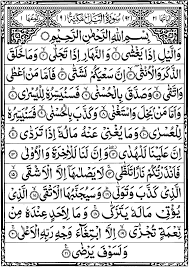 سُوْرَةُ الَّيْلِ مَكِّيَّةٌ
بِسْمِ اللهِ الرَّحْمٰنِ الرَّحِيْمِ
وَالَّيْلِ اِذَا يَغْشٰى ۙ وَالنَّهَارِ اِذَا تَجَلّٰى ۙ وَمَا خَلَقَ
الذَّكَرَ وَالْاُنْثٰٓى ۙ اِنَّ سَعْيَكُمْ لَشَتّٰى ؕ فَاَمَّا مَنْ اَعْطٰى
وَاتَّقٰى ۙ وَصَدَّقَ بِالْحُسْنٰى ۙ فَسَنُيَسِّرُهٗ لِلْيُسْرٰى ؕ
وَاَمَّا مَنْۢ بَخِلَ وَاسْتَغْنٰى ۙ وَكَذَّبَ بِالْحُسْنٰى ۙ
فَسَنُيَسِّرُهٗ لِلْعُسْرٰى ؕ وَمَا يُغْنِيْ عَنْهُ مَالُهٗٓ اِذَا تَرَدّٰى ؕ
اِنَّ عَلَيْنَا لَلْهُدٰى ۖ وَاِنَّ لَنَا لَلْاٰخِرَةَ وَالْاُوْلٰى
فَاَنْذَرْتُكُمْ نَارًا تَلَظّٰى ۚ لَا يَصْلٰىهَآ اِلَّا الْاَشْقَى ۙ
الَّذِيْ كَذَّبَ وَتَوَلّٰى ؕ وَسَيُجَنَّبُهَا الْاَتْقَى ۙ الَّذِيْ
يُؤْتِيْ مَالَهٗ يَتَزَكّٰى ۚ وَمَا لِاَحَدٍ عِنْدَهٗ مِنْ
نِّعْمَةٍ تُجْزٰٓى ۙ اِلَّا ابْتِغَآءَ وَجْهِ رَبِّهِ الْاَعْلٰى ۚ
وَلَسَوْفَ يَرْضٰى